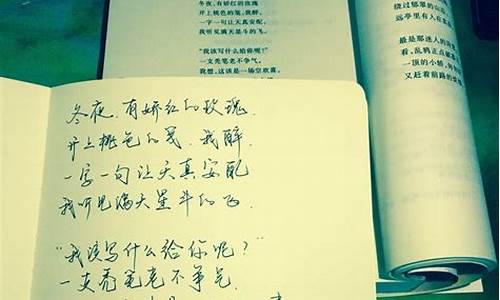 冬夜,有娇红的玫瑰
开上桃色的笺,我醉,
一字一句让天真安配,
我听见满天星斗的飞。
“我该写什么给你呢?”
一支秃笔老不争气,
我想,这该是一场空欢喜,
绕过郁翠的山
远亭里有人在
最是那迷人的
看,乱鸦正点破
一顶的小轿,
又赶着前路的
冬夜,有娇红的玫瑰,
开上桃色的笺,我醉,
一字一句让天真安配
我听见满天星斗的飞.
“我该写什么给你呢?”
一支秃笔老不争气,